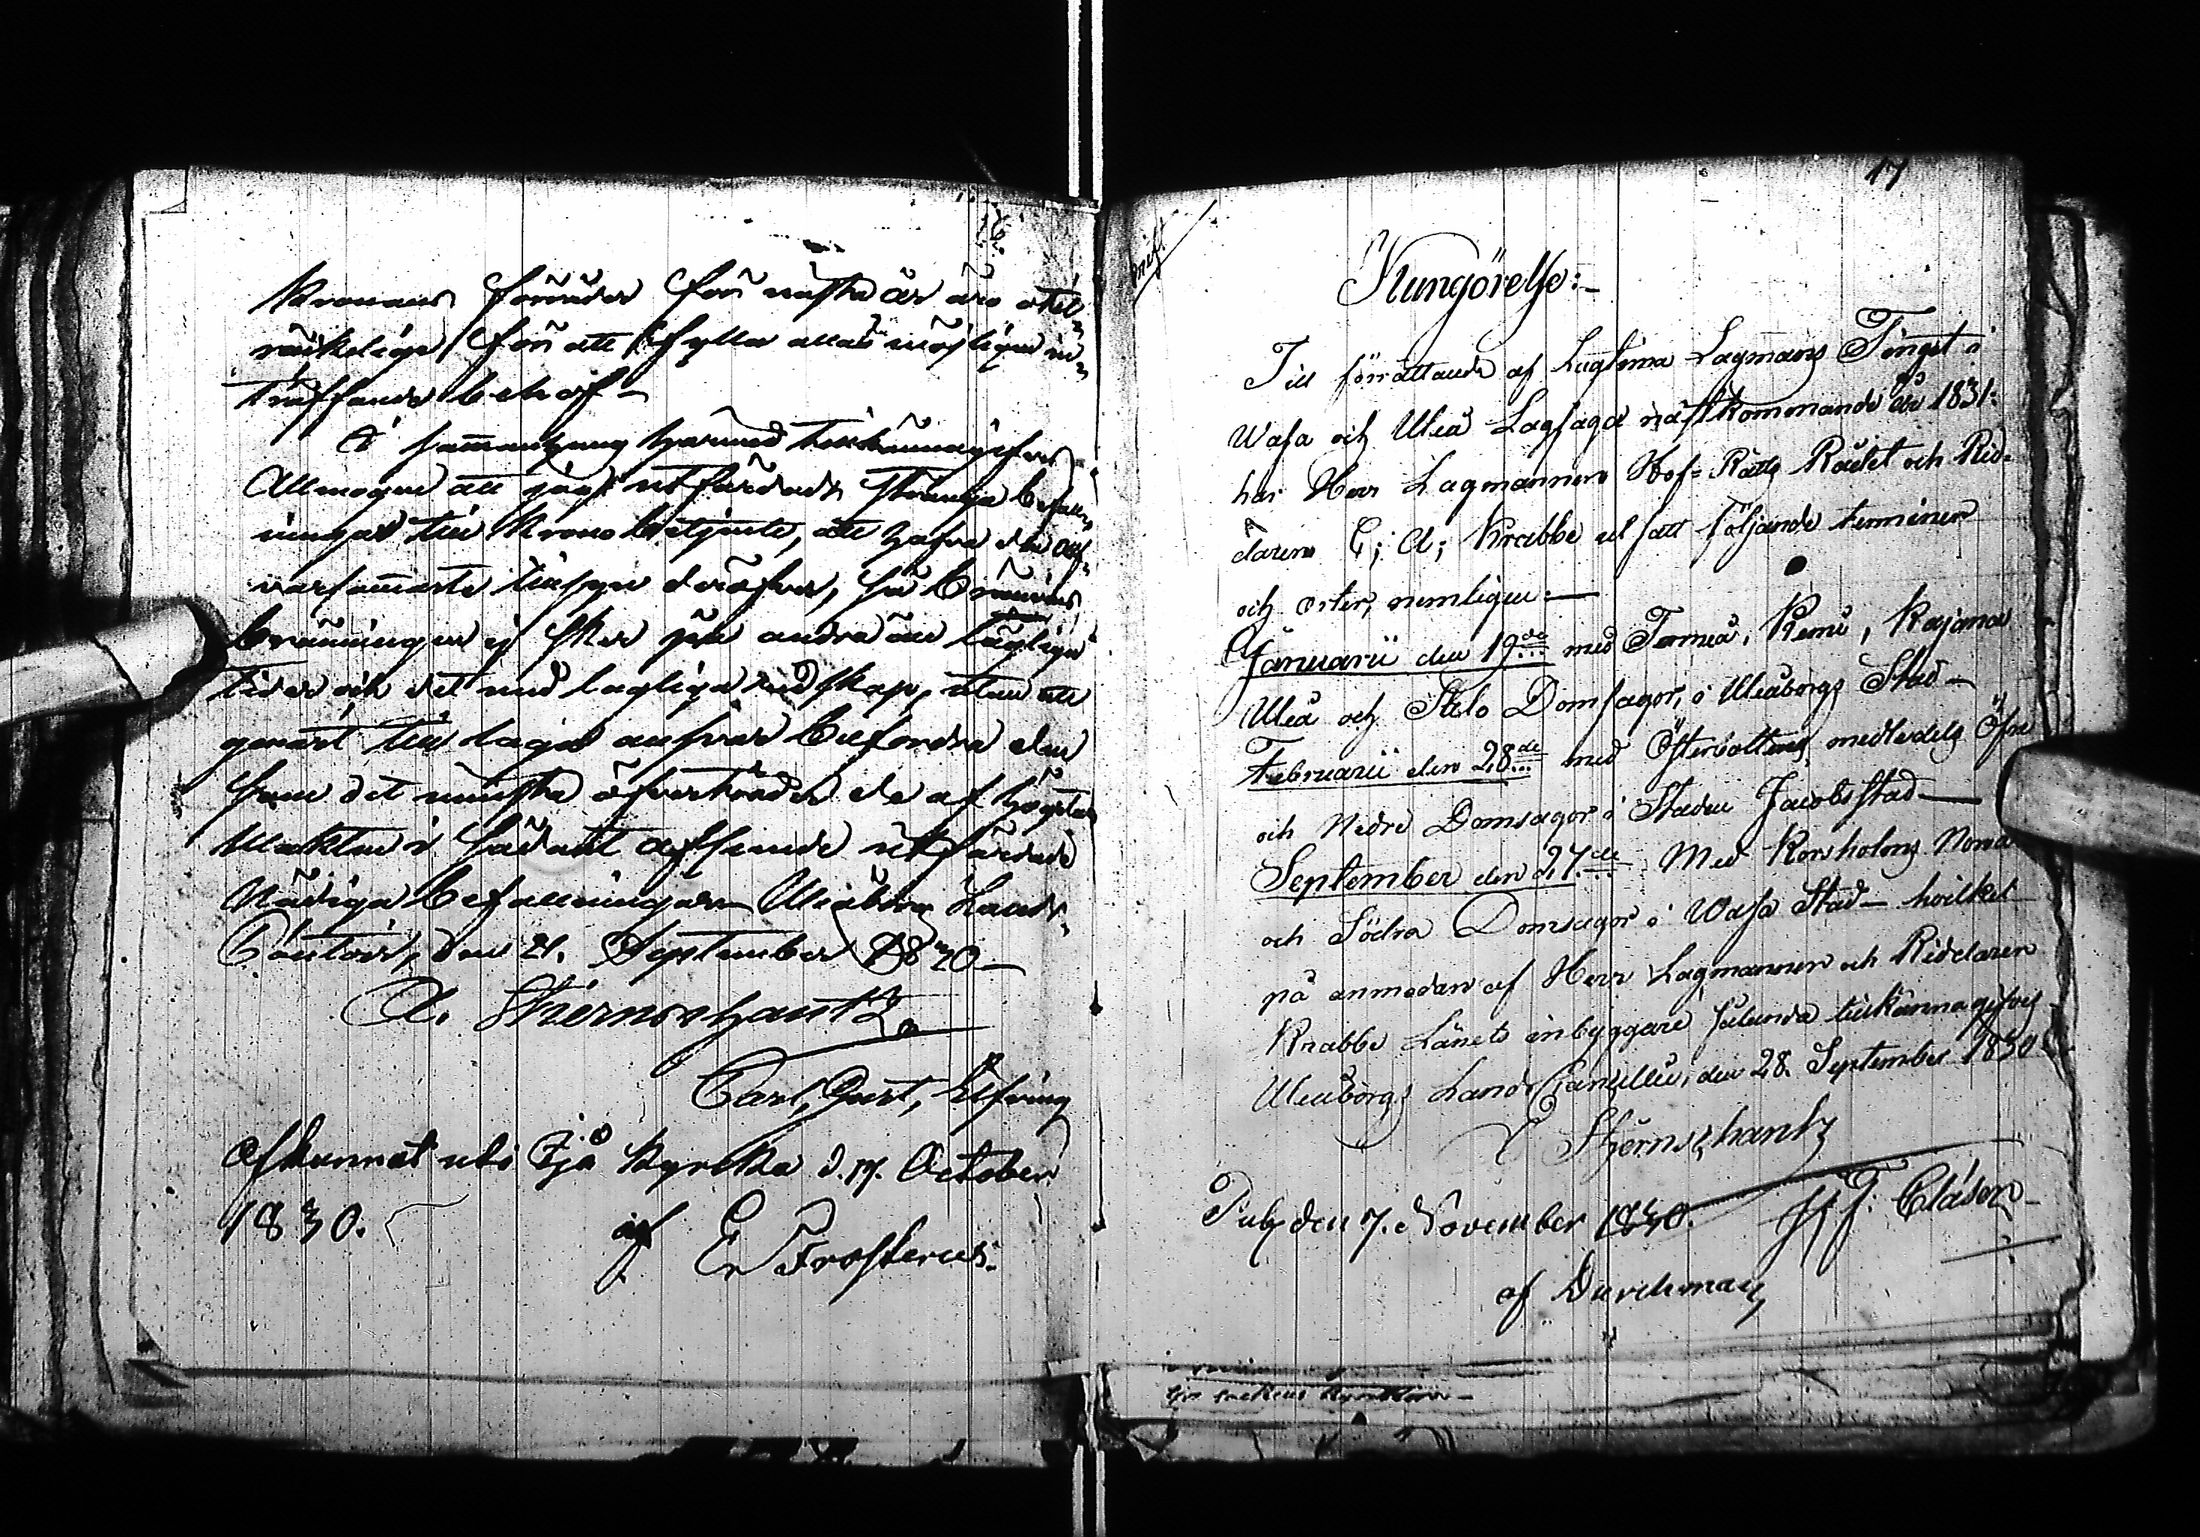 Kronans förråder för nästa år äro otill-
räckelige för att fylla alla möjligen in-
träffande behof –
I sammanhang härmed tillkännagifves
Allmogen att jag utfärdadt stränga befall-
ningar till Krono betjente, att hafva den all-
varsammaste tillsyn deröfver, så brännvins
bränningen ej sker på andra än laglige
tider och det med lagliga redskap, utan att
genast till laga ansvar befordra den
som det minsta öfverträder de af högsta
Makten i sådant afseende utfärdade
Nådiga befallningar. Uleåborgs Lands
Contoir, den 21. September 1830 –
A. Stjernschantz
Carl, Gust, Elfving
Afkunnat uti Ijå Kyrcka d. 17. October
1830.
af E Frosterus.
17
Kungörelse:–
Till förrättande af Lagtima Lagmans Tinget i
Wasa och Uleå Lagsaga nästkommande år 1831:
har Herr Lagmannen Hof-Rätts Rådet och Rid-
daren C; A; Krabbe utsatt följande terminer
och orter, nemligen: —
Januarii den 19de med Torneå, Kemi, Kajana
Uleå och Salo Domsagor, i Uleåborgs Stad –
Februarii den 28de med Österbottens medledels Öfre
och Nedre Domsagor i Staden Jacobsstad —
September den 27de Med Korsholms Norra
och Södra Domsagor i Wasa Stad – hvilket
på anmodan af Herr Lagmannen och Riddaren
Krabbe Länets inbyggare sålunda tillkännagifves
Uleåborgs Lands Cancellie, den 28. September 1830
Stjernschantz
Publ den 7. November 1830. H. F. Clåson
af Durchman